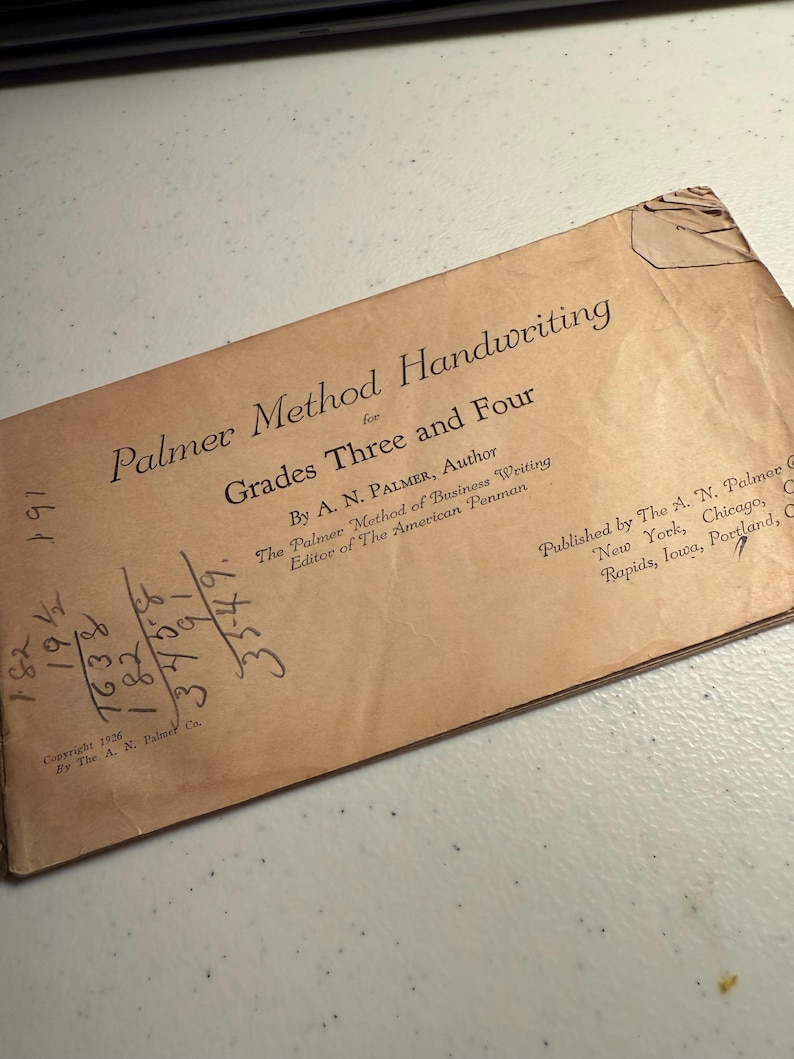 Palmer Method Handwriting
for
Grades Three and Four
By A. N. PALMER, Author
The Palmer Method of Business Writing
Editor of The American Penman
Published by The A. N. Palmer
New York, Chicago,
Rapids, Iowa, Portland,
Copyright 1926
By The A. N. Palmer Co.
191
182
19½
1638
182
3458
91
3549.